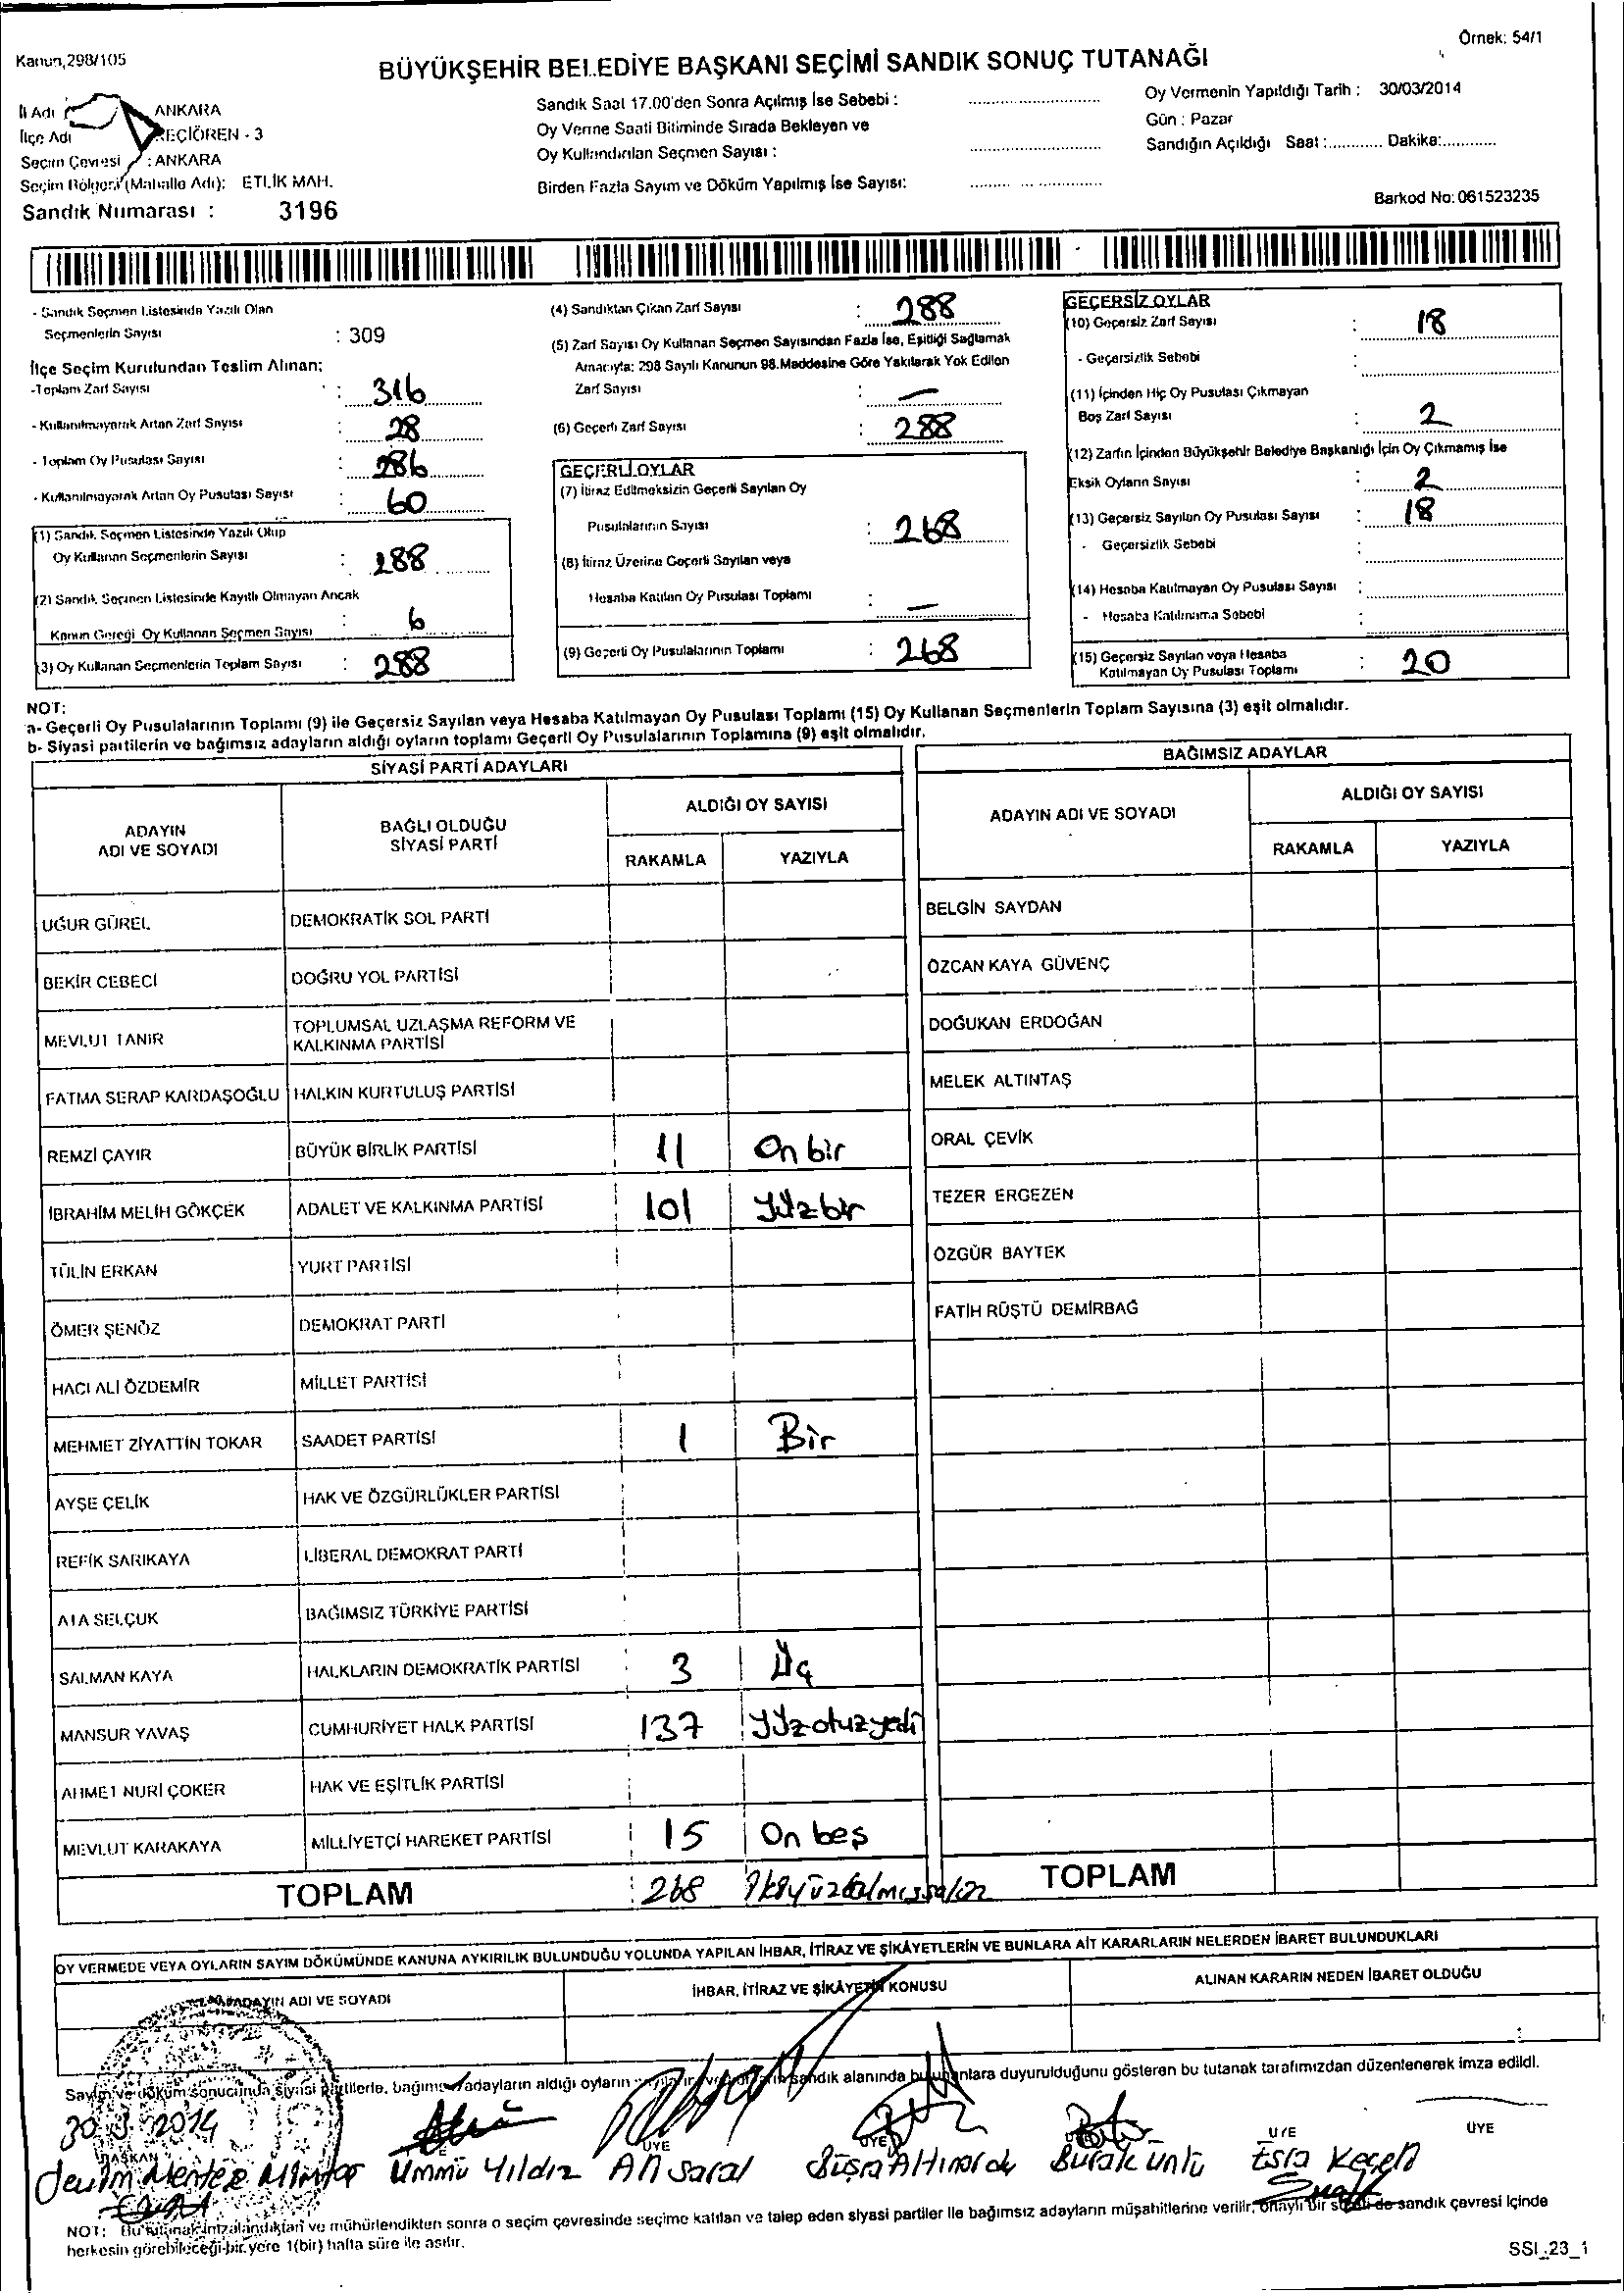 Kanun,298/105
Örnek: 54/1
BÜYÜKŞEHİR BELEDİYE BAŞKANI SEÇİMİ SANDIK SONUÇ TUTANAĞI
İl Adı ANKARA
İlçe Adı KEÇİÖREN - 3
Seçim Çevresi : ANKARA
Seçim Bölgesi (Mahalle Adı): ETLİK MAH.
Sandık Numarası : 3196
Sandık Saat 17.00'den Sonra Açılmış İse Sebebi :
Oy Verme Saati Bitiminde Sırada Bekleyen ve
Oy Kullandırılan Seçmen Sayısı :
Birden Fazla Sayım ve Döküm Yapılmış İse Sayısı:
Oy Vermenin Yapıldığı Tarih : 30/03/2014
Gün : Pazar
Sandığın Açıldığı Saat :............ Dakika:............
Barkod No: 061523235
- Sandık Seçmen Listesinde Yazılı Olan
Seçmenlerin Sayısı : 309
İlçe Seçim Kurulundan Teslim Alınan:
-Toplam Zarf Sayısı : 316
- Kullanılmayarak Artan Zarf Sayısı : 28
- Toplam Oy Pusulası Sayısı : 286
- Kullanılmayarak Artan Oy Pusulası Sayısı : 60
(1) Sandık Seçmen Listesinde Yazılı Olup
Oy Kullanan Seçmenlerin Sayısı : 288
(2) Sandık Seçmen Listesinde Kayıtlı Olmayan Ancak
Kanun Gereği Oy Kullanan Seçmen Sayısı : 6
(3) Oy Kullanan Seçmenlerin Toplam Sayısı : 288
(4) Sandıktan Çıkan Zarf Sayısı : 288
(5) Zarf Sayısı Oy Kullanan Seçmen Sayısından Fazla İse, Eşitliği Sağlamak
Amacıyla: 298 Sayılı Kanunun 98.Maddesine Göre Yakılarak Yok Edilen
Zarf Sayısı : —
(6) Geçerli Zarf Sayısı : 288
GEÇERLİ OYLAR
(7) İtiraz Edilmeksizin Geçerli Sayılan Oy
Pusulalarının Sayısı : 268
(8) İtiraz Üzerine Geçerli Sayılan veya
Hesaba Katılan Oy Pusulası Toplamı : —
(9) Geçerli Oy Pusulalarının Toplamı : 268
GEÇERSİZ OYLAR
(10) Geçersiz Zarf Sayısı : 18
- Geçersizlik Sebebi :
(11) İçinden Hiç Oy Pusulası Çıkmayan
Boş Zarf Sayısı : 2
(12) Zarfın İçinden Büyükşehir Belediye Başkanlığı İçin Oy Çıkmamış İse
Eksik Oyların Sayısı : 2
(13) Geçersiz Sayılan Oy Pusulası Sayısı : 18
- Geçersizlik Sebebi :
(14) Hesaba Katılmayan Oy Pusulası Sayısı :
- Hesaba Katılmama Sebebi :
(15) Geçersiz Sayılan veya Hesaba
Katılmayan Oy Pusulası Toplamı : 20
NOT:
a- Geçerli Oy Pusulalarının Toplamı (9) ile Geçersiz Sayılan veya Hesaba Katılmayan Oy Pusulası Toplamı (15) Oy Kullanan Seçmenlerin Toplam Sayısına (3) eşit olmalıdır.
b- Siyasi partilerin ve bağımsız adayların aldığı oyların toplamı Geçerli Oy Pusulalarının Toplamına (9) eşit olmalıdır.
SİYASİ PARTİ ADAYLARI
ADAYIN ADI VE SOYADI
BAĞLI OLDUĞU SİYASİ PARTİ
ALDIĞI OY SAYISI
RAKAMLA YAZIYLA
UĞUR GÜREL DEMOKRATİK SOL PARTİ
BEKİR CEBECİ DOĞRU YOL PARTİSİ
MEVLUT TANIR TOPLUMSAL UZLAŞMA REFORM VE KALKINMA PARTİSİ
FATMA SERAP KARDAŞOĞLU HALKIN KURTULUŞ PARTİSİ
REMZİ ÇAYIR BÜYÜK BİRLİK PARTİSİ 11 On bir
İBRAHİM MELİH GÖKÇEK ADALET VE KALKINMA PARTİSİ 101 Yüzbir
TÜLİN ERKAN YURT PARTİSİ
ÖMER ŞENÖZ DEMOKRAT PARTİ
HACI ALİ ÖZDEMİR MİLLET PARTİSİ
MEHMET ZİYATTİN TOKAR SAADET PARTİSİ 1 Bir
AYŞE ÇELİK HAK VE ÖZGÜRLÜKLER PARTİSİ
REFİK SARIKAYA LİBERAL DEMOKRAT PARTİ
ATA SELÇUK BAĞIMSIZ TÜRKİYE PARTİSİ
SALMAN KAYA HALKLARIN DEMOKRATİK PARTİSİ 3 Üç
MANSUR YAVAŞ CUMHURİYET HALK PARTİSİ 137 Yüzotuzyedi
AHMET NURİ ÇOKER HAK VE EŞİTLİK PARTİSİ
MEVLUT KARAKAYA MİLLİYETÇİ HAREKET PARTİSİ 15 On beş
TOPLAM 268
BAĞIMSIZ ADAYLAR
ADAYIN ADI VE SOYADI
ALDIĞI OY SAYISI
RAKAMLA YAZIYLA
BELGİN SAYDAN
ÖZCAN KAYA GÜVENÇ
DOĞUKAN ERDOĞAN
MELEK ALTINTAŞ
ORAL ÇEVİK
TEZER ERGEZEN
ÖZGÜR BAYTEK
FATİH RÜŞTÜ DEMİRBAĞ
TOPLAM
OY VERMEDE VEYA OYLARIN SAYIM DÖKÜMÜNDE KANUNA AYKIRILIK BULUNDUĞU YOLUNDA YAPILAN İHBAR, İTİRAZ VE ŞİKÂYETLERİN VE BUNLARA AİT KARARLARIN NELERDEN İBARET BULUNDUKLARI
ADI VE SOYADI
İHBAR, İTİRAZ VE ŞİKÂYETİN KONUSU
ALINAN KARARIN NEDEN İBARET OLDUĞU
Sayım ve döküm sonucunda siyasi partilerle, bağımsız adayların aldığı oyların sandık alanında bulunanlara duyurulduğunu gösteren bu tutanak tarafımızdan düzenlenerek imza edildi.
30.3.2014
BAŞKAN ÜYE ÜYE ÜYE ÜYE
Ümmü Yıldız Burak Ünlü Esra
NOT: Bu tutanak imzalandıktan ve mühürlendikten sonra o seçim çevresinde seçime katılan ve talep eden siyasi partiler ile bağımsız adayların müşahitlerine verilir, onaylı bir sureti de sandık çevresi içinde
herkesin görebileceği bir yere 1(bir) hafta süre ile asılır.
SSI_23_1